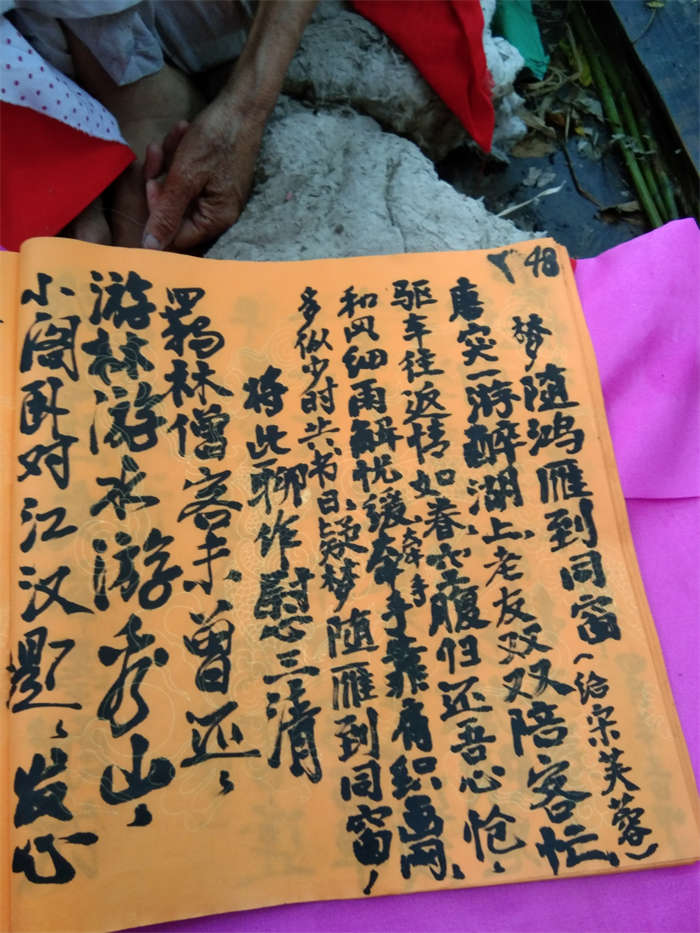 48
梦随鸿雁到同窗(给宋芙蓉)
唐突一游醉湖上,老友双双陪客忙、
驱车往返情如眷、空腹但还吾心怆、
牵手
和风细雨解忧缓、牵手靠肩织画网、
多似少时共书日、疑梦随雁到同窗,
将此聊作慰三清
羁林僧客未曾还、
游林游水游秀山、
小阁卧对江汉题、发心